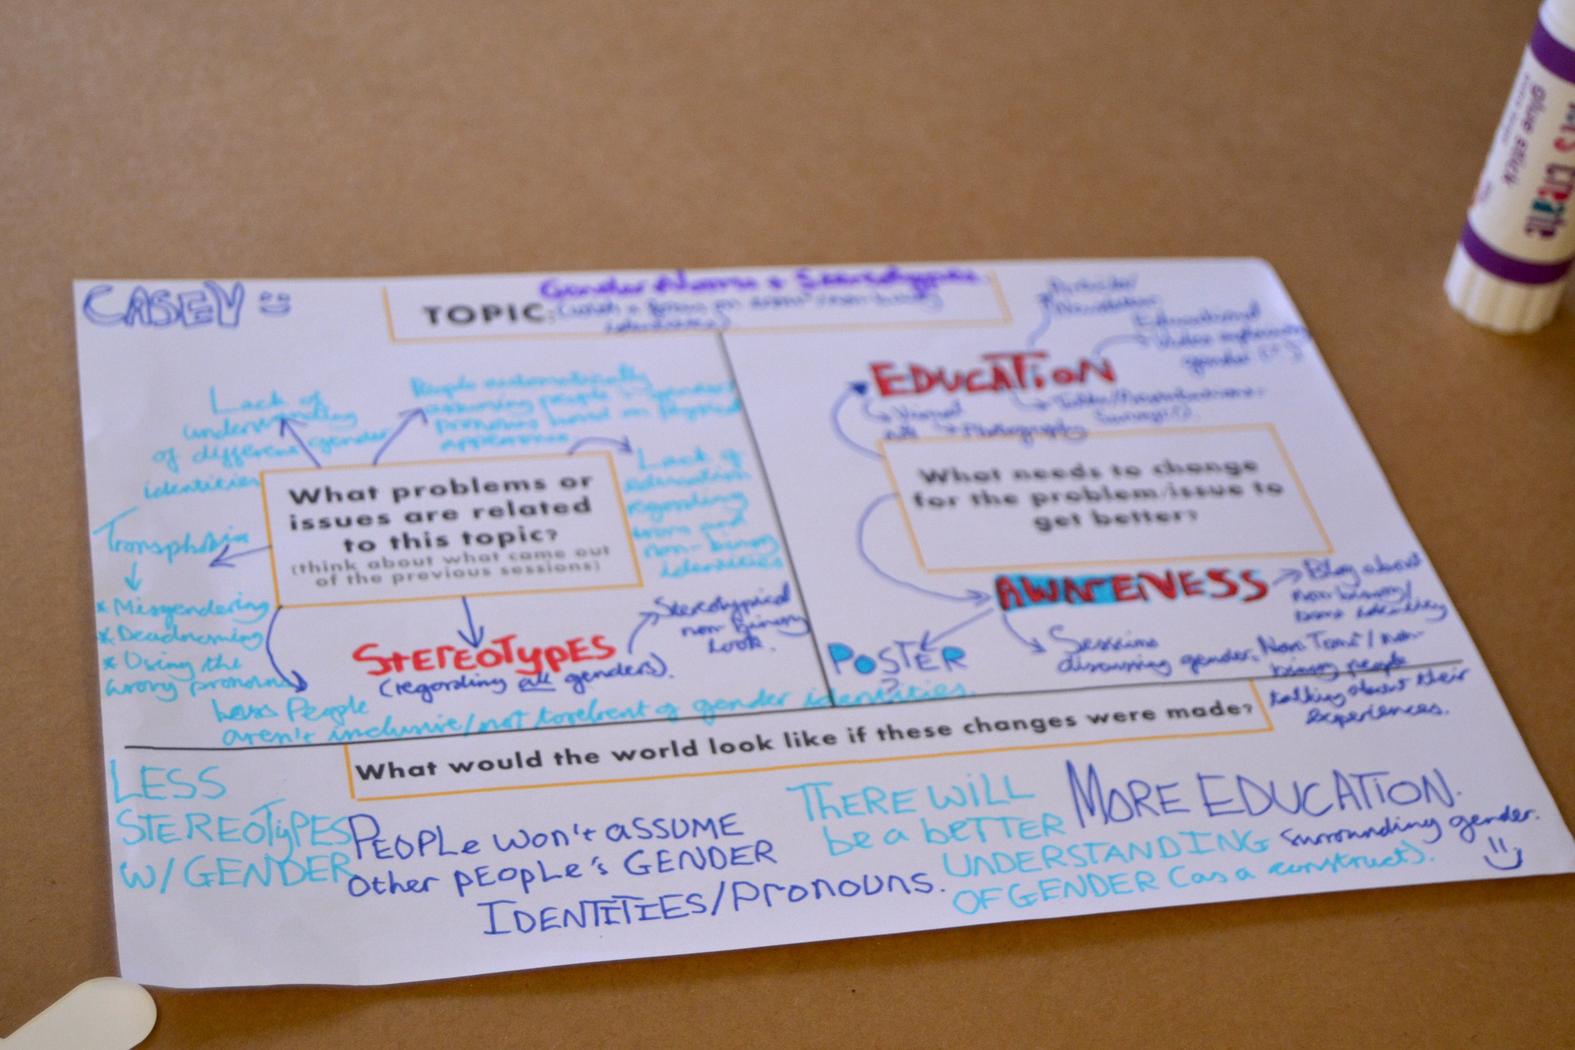 CASEY
Gender Norms + Stereotypes
TOPIC:
(with a focus on trans/non-binary
identities)
Lack of
understanding
of different gender
identities
People automatically
assuming people's gender/
pronouns based on physical
appearance
Lack of
education
regarding
trans and
non-binary
identities
What problems or
issues are related
to this topic?
(think about what came out
of the previous sessions)
Transphobia
* Misgendering
* Deadnaming
* Using the
wrong pronouns
STEREOTYPES
(regarding all genders).
Stereotypical
non-binary
look.
People
aren't inclusive/not tolerant of gender identities.
Newsletter
Educational
Video explaining
gender
EDUCATION
Visual
Art
Photography
Talks/Presentations.
What needs to change
for the problem/issue to
get better?
AWARENESS
Blog about
non-binary/
trans identity
POSTER
?
Sessions
discussing gender.
Non Trans/non-
binary people
talking about their
experiences.
What would the world look like if these changes were made?
LESS
STEREOTYPES
W/ GENDER
PEOPLE WON'T ASSUME
other PEOPLE'S GENDER
IDENTITIES/PRONOUNS.
THERE WILL
be a beTTER
UNDERSTANDING
OF GENDER (as a construct).
MORE EDUCATION.
surrounding gender.
Glue stick